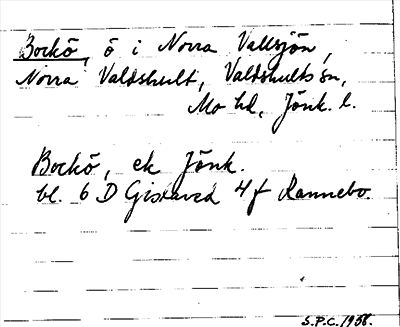 Bockö, ö i Norra Vallsjön,
Norra Valdshult, Valdshults sn,
Mo hd, Jönk. l.
Bockö, ek Jönk.
bl. 6 D Gislaved 4 f Rannebo.
S.P.C. 1958.